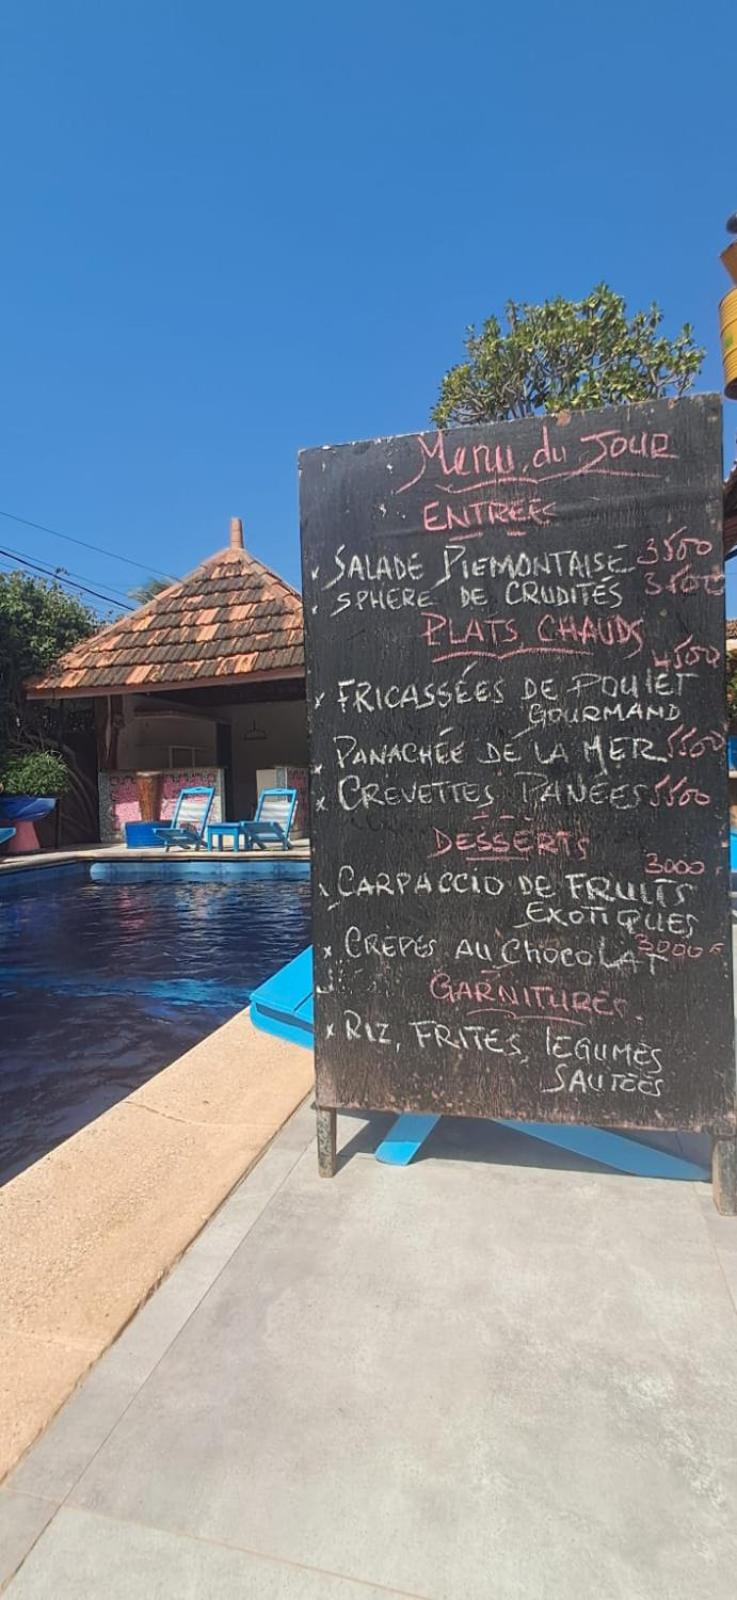 Menu du Jour
ENTREES
x SALADE PIEMONTAISE 3500
x SPHERE DE CRUDITÉS 3500
PLATS CHAUDS
4500
x FRICASSÉES DE POULET
GOURMAND
x PANACHÉE DE LA MER 5500
x CREVETTES PANEES 5500
DESSERTS
3000 F
x CARPACCIO DE FRUITS
EXOTIQUES
x CRÈPES AU CHOCOLAT 3000 F
GARNITURES
x RIZ, FRITES, LEGUMES
SAUTÉES